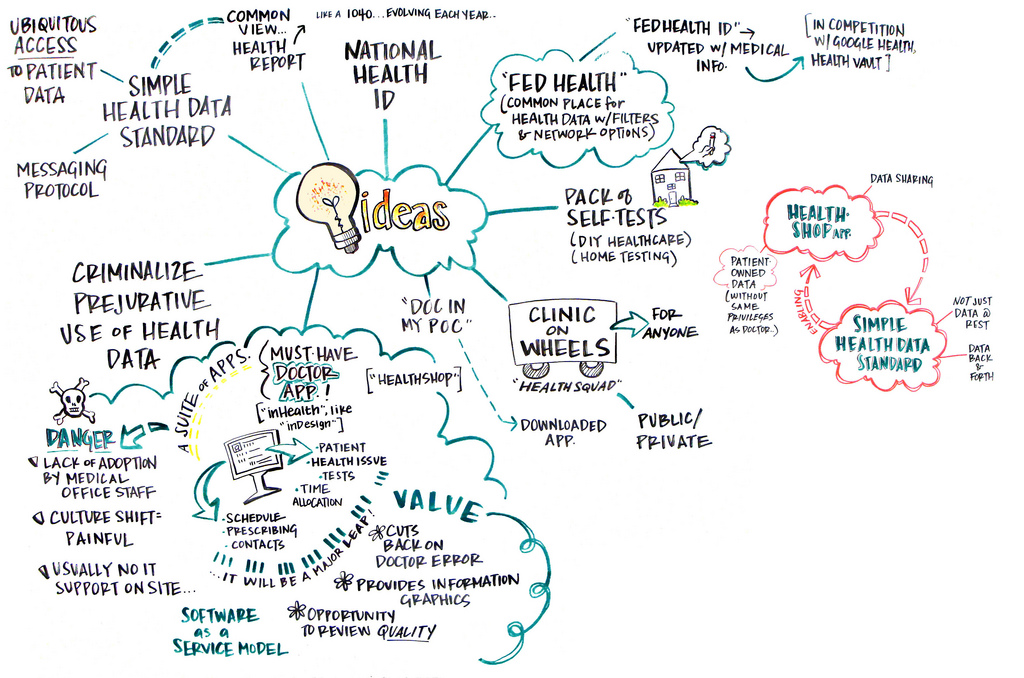 UBIQUITOUS
ACCESS
TO PATIENT
DATA
COMMON
VIEW...
HEALTH
REPORT
LIKE A 1040...EVOLVING EACH YEAR..
SIMPLE
HEALTH DATA
STANDARD
MESSAGING
PROTOCOL
NATIONAL
HEALTH
ID
"FED HEALTH"
(COMMON PLACE for
HEALTH DATA w/FILTERS
& NETWORK OPTIONS)
"FED HEALTH ID"
UPDATED w/ MEDICAL
INFO.
[IN COMPETITION
W/ GOOGLE HEALTH,
HEALTH VAULT]
ideas
PACK of
SELF-TESTS
(DIY HEALTHCARE)
(HOME TESTING)
DATA SHARING
HEALTH-
SHOP APP.
PATIENT-
OWNED
DATA
(WITHOUT
SAME
PRIVILEGES
AS DOCTOR..)
ENABLING
SIMPLE
HEALTH DATA
STANDARD
NOT JUST
DATA @
REST
DATA
BACK
&
FORTH
CRIMINALIZE
PREJURATIVE
USE OF HEALTH
DATA
"DOC IN
MY POC"
DOWNLOADED
APP.
CLINIC
ON
WHEELS
"HEALTH SQUAD"
FOR
ANYONE
PUBLIC/
PRIVATE
A SUITE of APPS.
MUST-HAVE
DOCTOR
APP!
["inHealth", like
"inDesign"]
["HEALTHSHOP"]
• PATIENT
• HEALTH ISSUE
• TESTS
• TIME
ALLOCATION
• SCHEDULE
• PRESCRIBING
• CONTACTS
...IT WILL BE A MAJOR LEAP!
DANGER
LACK OF ADOPTION
BY MEDICAL
OFFICE STAFF
CULTURE SHIFT=
PAINFUL
USUALLY NO IT
SUPPORT ON SITE...
VALUE
CUTS
BACK ON
DOCTOR ERROR
PROVIDES INFORMATION
GRAPHICS
OPPORTUNITY
TO REVIEW QUALITY
SOFTWARE
as a
SERVICE MODEL